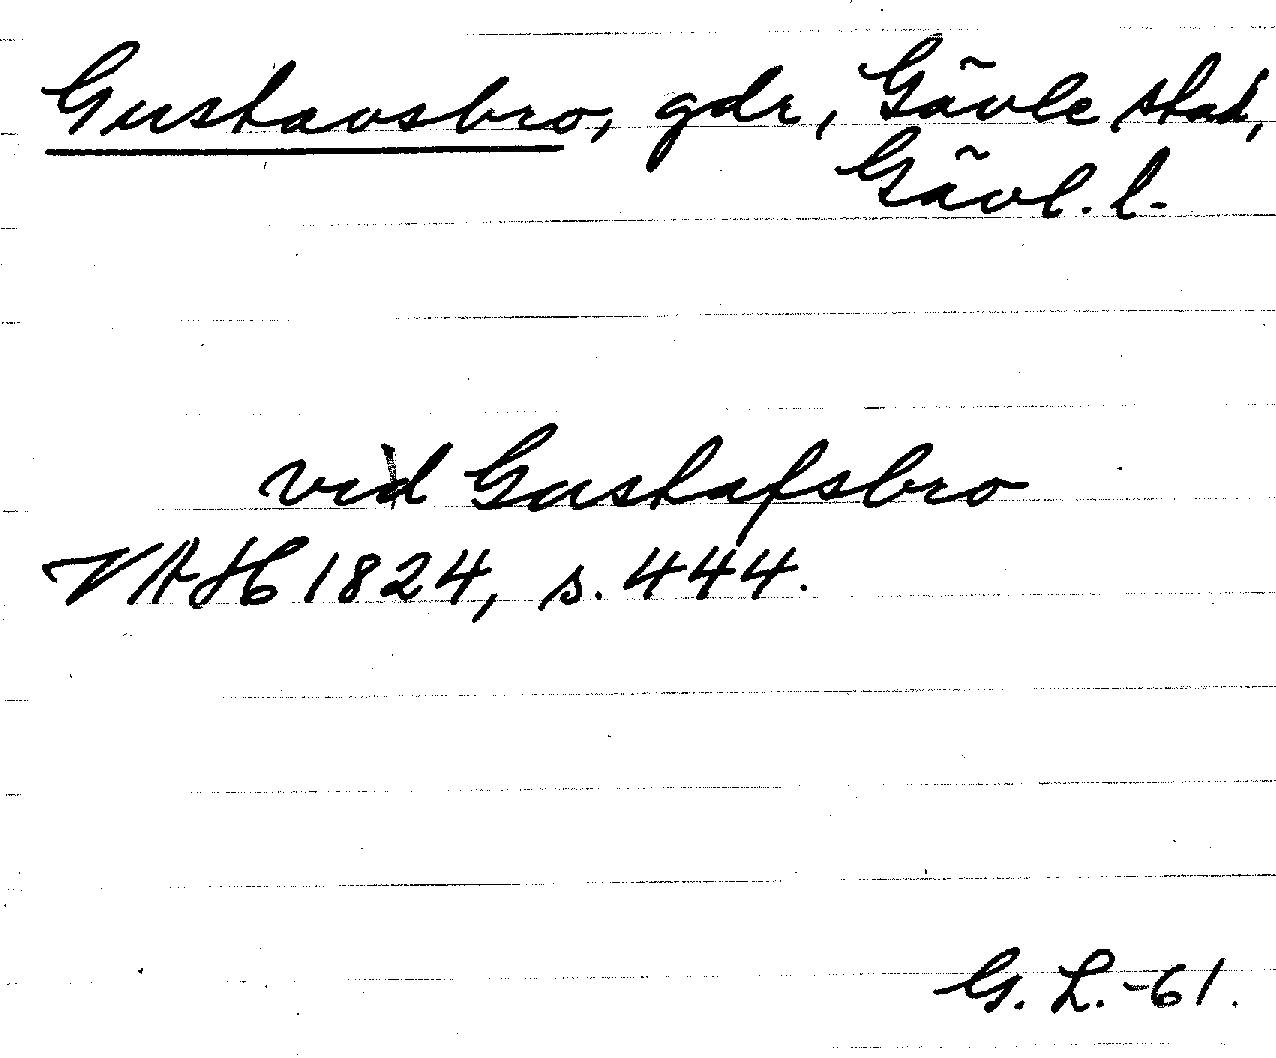 Gustavsbro, gdr, Gävle stad,
Gävl. l.
vid Gustafsbro
VAH 1824, s. 444.
G. L. -61.